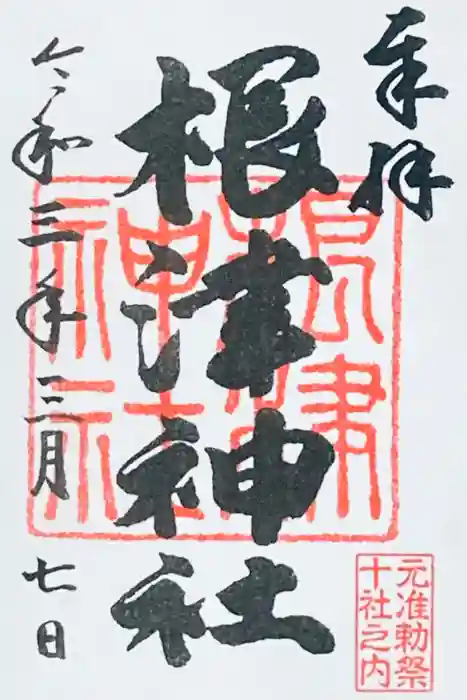 奉拝
根津神社
令和三年三月七日
根津
神社
元准勅祭
十社之内